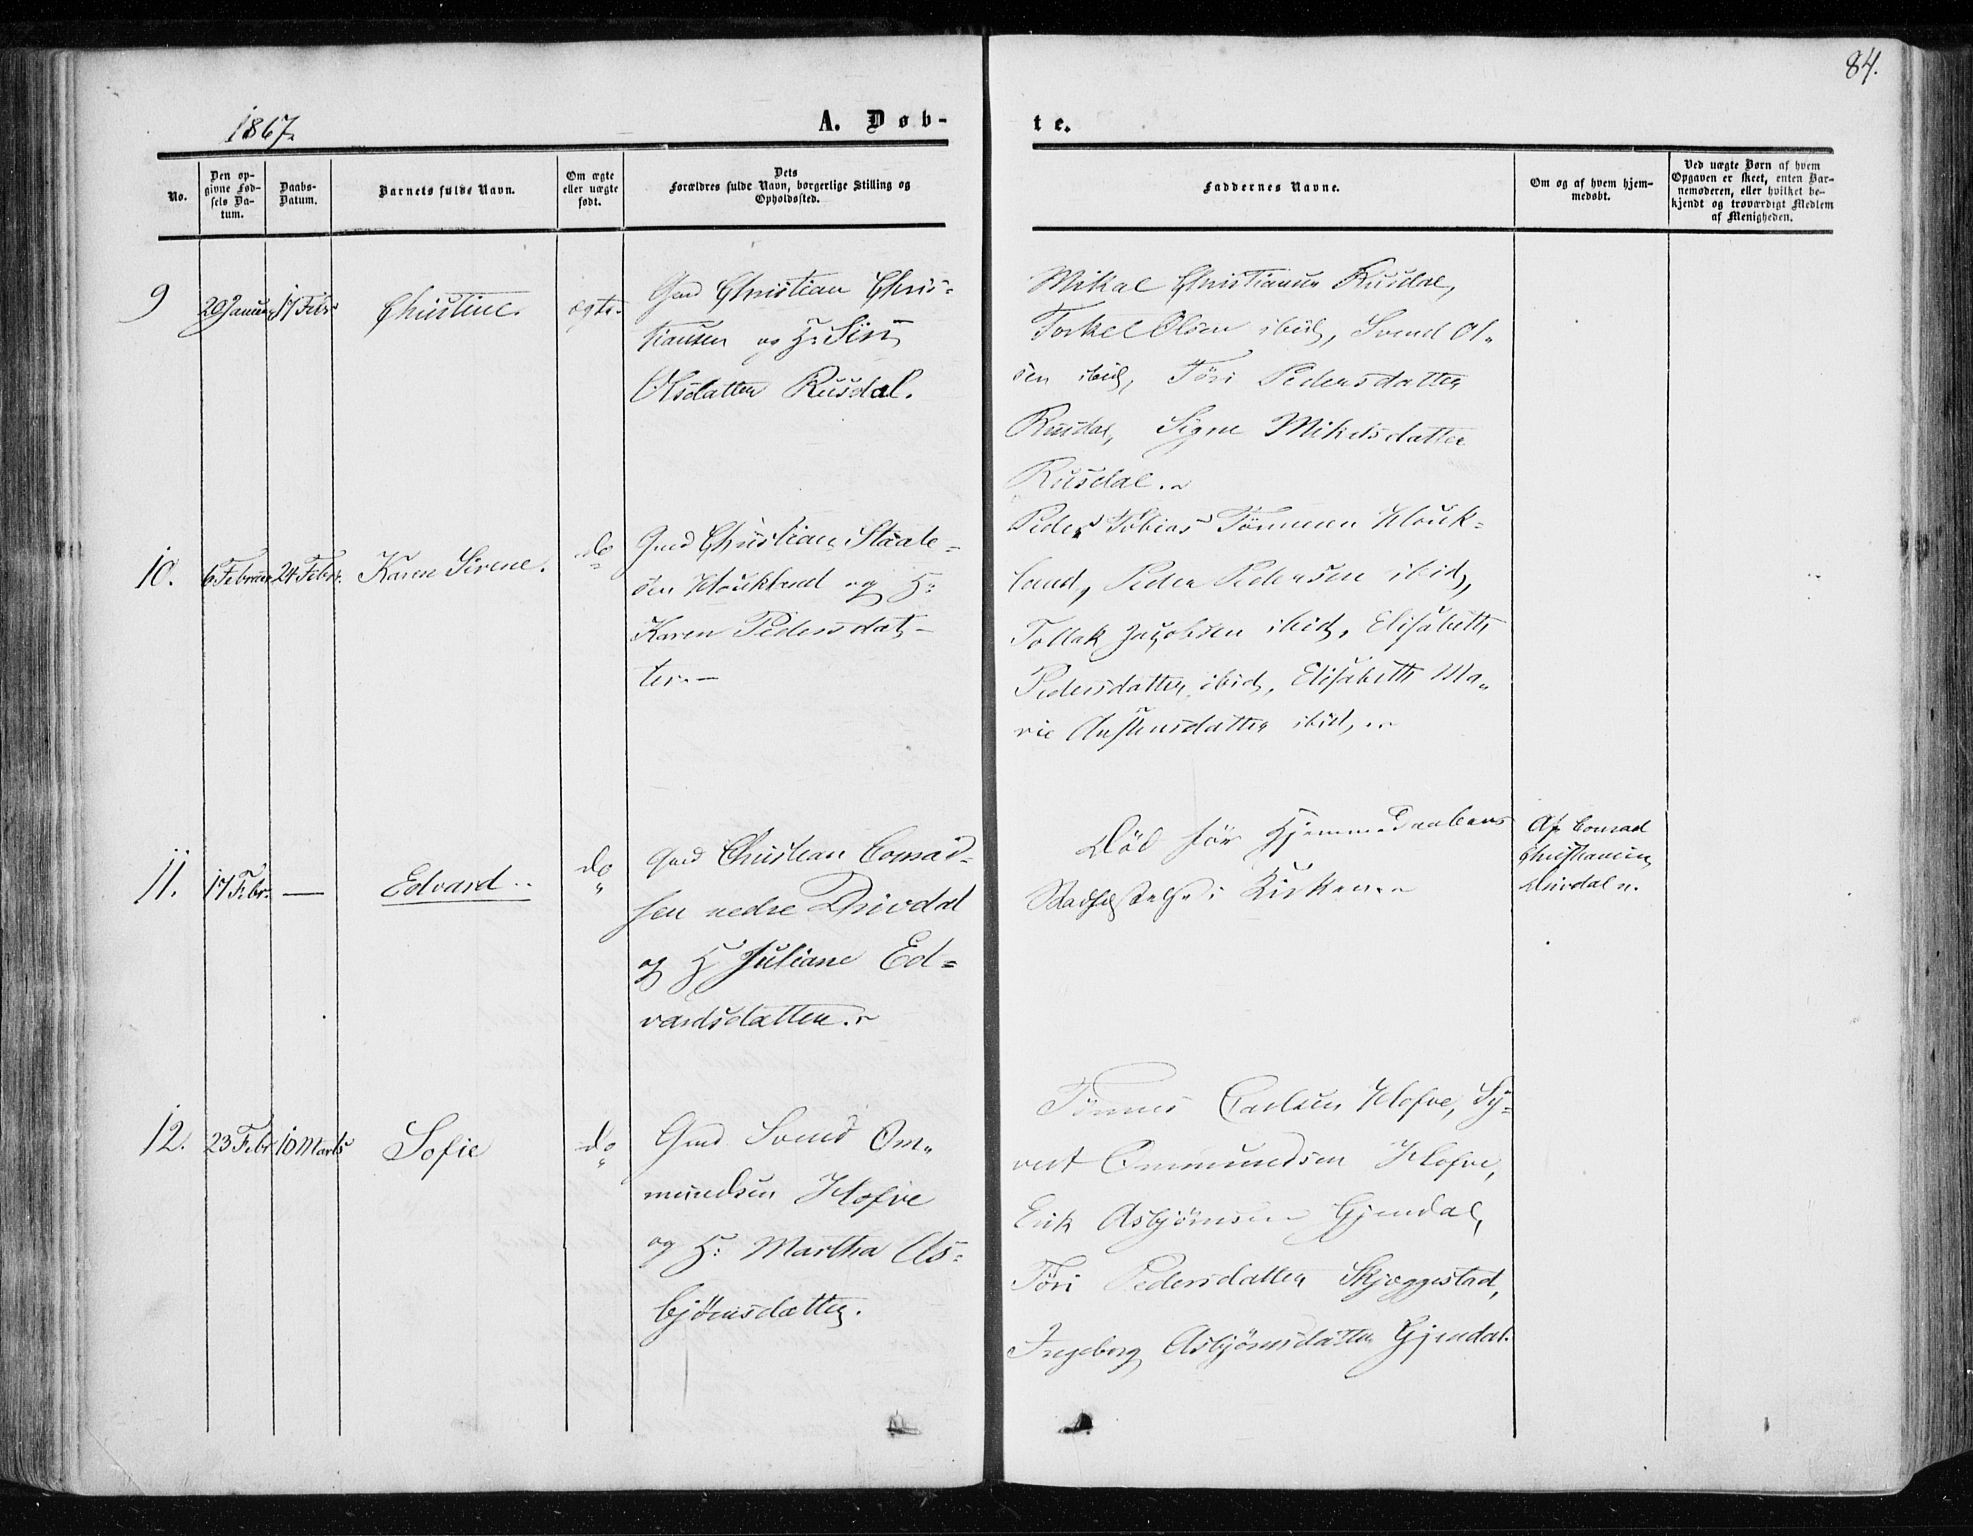 84.
1867.
A. Døb-
te.
No.
Den op-
givne Fød-
sels Da-
tum.
Daabs-
Datum.
Barnets fulde Navn.
Om ægte
eller uægte
født.
Dets
Forældres fulde Navn, borgerlige Stilling og
Opholdssted.
Faddernes Navne.
Om og af hvem hjem-
medøbt.
Ved uægte Børn af hvem
Opgaven er skeet, enten Bar-
nemoderen, eller hvilket be-
kjendt og troværdigt Medlem
af Menigheden.
9
20 Januar
17 Febr
Christine.
ægte.
Gmd Christian Chris-
tiansen og H:
Olsdatter Rusdal.
Mikal Christiansen Rusdal,
Torkel Olsen ibid, Svend Ol-
sen ibid, Töri Pedersdatter
Rusdal, Signe Mikelsdatter
Rusdal.
10.
6 Februar
24 Febr.
Karen Sirene.
do
Gmd Christian Staale-
sen Houkland og H:
Karen Pedersdat-
ter.
Peder Tobias Tönnesen Houk-
land, Peder Pedersen ibid,
Tollak Jacobsen ibid, Elisabeth
Pedersdatter ibid, Elisabeth Ma-
rie Austensdatter ibid,
11.
17 Febr.
—
Edvard
do
"
Gmd Christian Conrad-
sen nedre Drivdal
og H Juliane Ed-
vardsdatter.
Död før Hjemmedaabens
Stadfæstelse i Kirken.
Af Conrad
Christiansen
Drivdal
12.
23 Febr
10 Marts
Sofie
do
"
Gmd Svend Om-
mundsen Hofve
og H: Martha As-
bjørnsdatter.
Tönnes Carlsen Hofve, Sy-
vert Ommundsen Hofve,
Erik Asbjørnsen Gjendal,
Töri Pedersdatter Skjæggestad,
Ingeborg Asbjørnsdatter Gjendal.